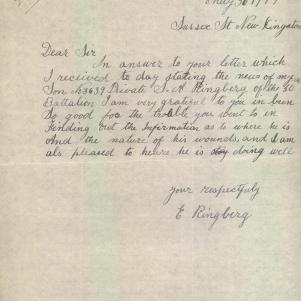 Sussex St New Kingston
Dear Sir
In answer to your letter which
I received to day stating the news of my
Son No 3659 Private S. A Ringberg of the 30
Battalion I am very grateful to you in been
So good for the trouble you went to in
Finding out the Information as to where he is
And the nature of his wounds, and I am
als pleased to heare he is doing well
your respectfully
E Ringberg